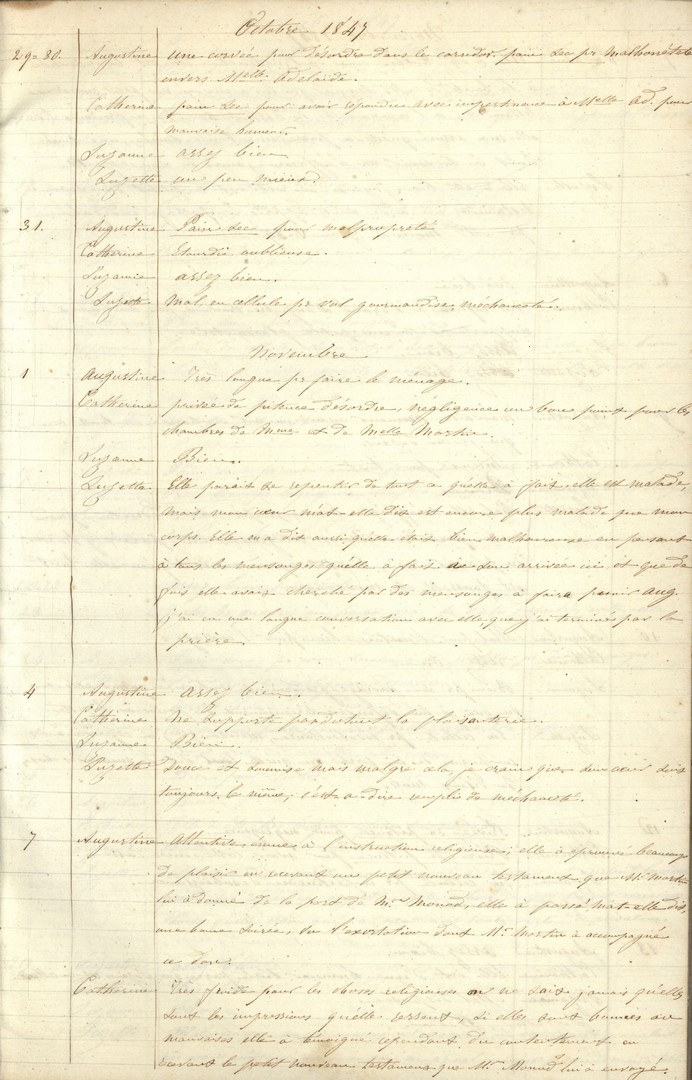 Octobre 1847
29=30. Augustine une corvée pour désordre dans le corridor. pain sec pr. malhonnêteté
envers Melle Adelaïde.
Catherine pain sec pour avoir repondue avec impertinence à Melle Ad. pour
mauvaise humeur.
Suzanne assez bien
Suzette un peu mieux
31. Augustine Pain sec pour malpropreté
Catherine Etourdie oublieuse.
Suzanne assez bien.
Suzette Mal. en cellule pr vol gourmandise, méchanceté.
Novembre
1 Augustine Très longue pr faire le ménage.
Catherine privée de pitence désordre, négligence un bon point pour les
chambres de Mme et de Melle Martin.
Suzanne Bien.
Suzette Elle parait se repentir de tout ce quelle à fait. elle est malade,
mais mon cœur m'at-elle dit est encore plus malade que mon
corps. Elle m'a dit aussi quelle était bien malheureuse en pensant
à tous les mensonges quelle à fait de son arrivée ici et que de
fois elle avait cherché par des mensonges à faire punir Aug.
j'ai eu une longue conversation avec elle, que j'ai terminée par la
prière.
4 Augustine assez bien.
Catherine Ne supporte pas du tout la plaisanterie.
Suzanne Bien.
Suzette Douce et soumise mais malgré cela je crains que son cœur soit
toujours le même, c'est a dire remplis de méchanceté.
7 Augustine Attentive, émue à l'instruction religieuse; elle à éprouvé beaucoup
de plaisir en recevant une petit nouveau testament que Mr Martin
lui à donné de la part de Mr Monod, elle à passé mat-elle dit,
une bonne soirée, sur l'exortation dont Mr Martin à accompagné
ce don.
Catherine Très froide pour les choses religieuses on ne sait jamais quelles
sont les impressions quelle ressent, si elles sont bonnes ou
mauvaises elle à témoigné cependant du contentement en
recevant le petit nouveau testament que Mr Monod lui à envoyé.